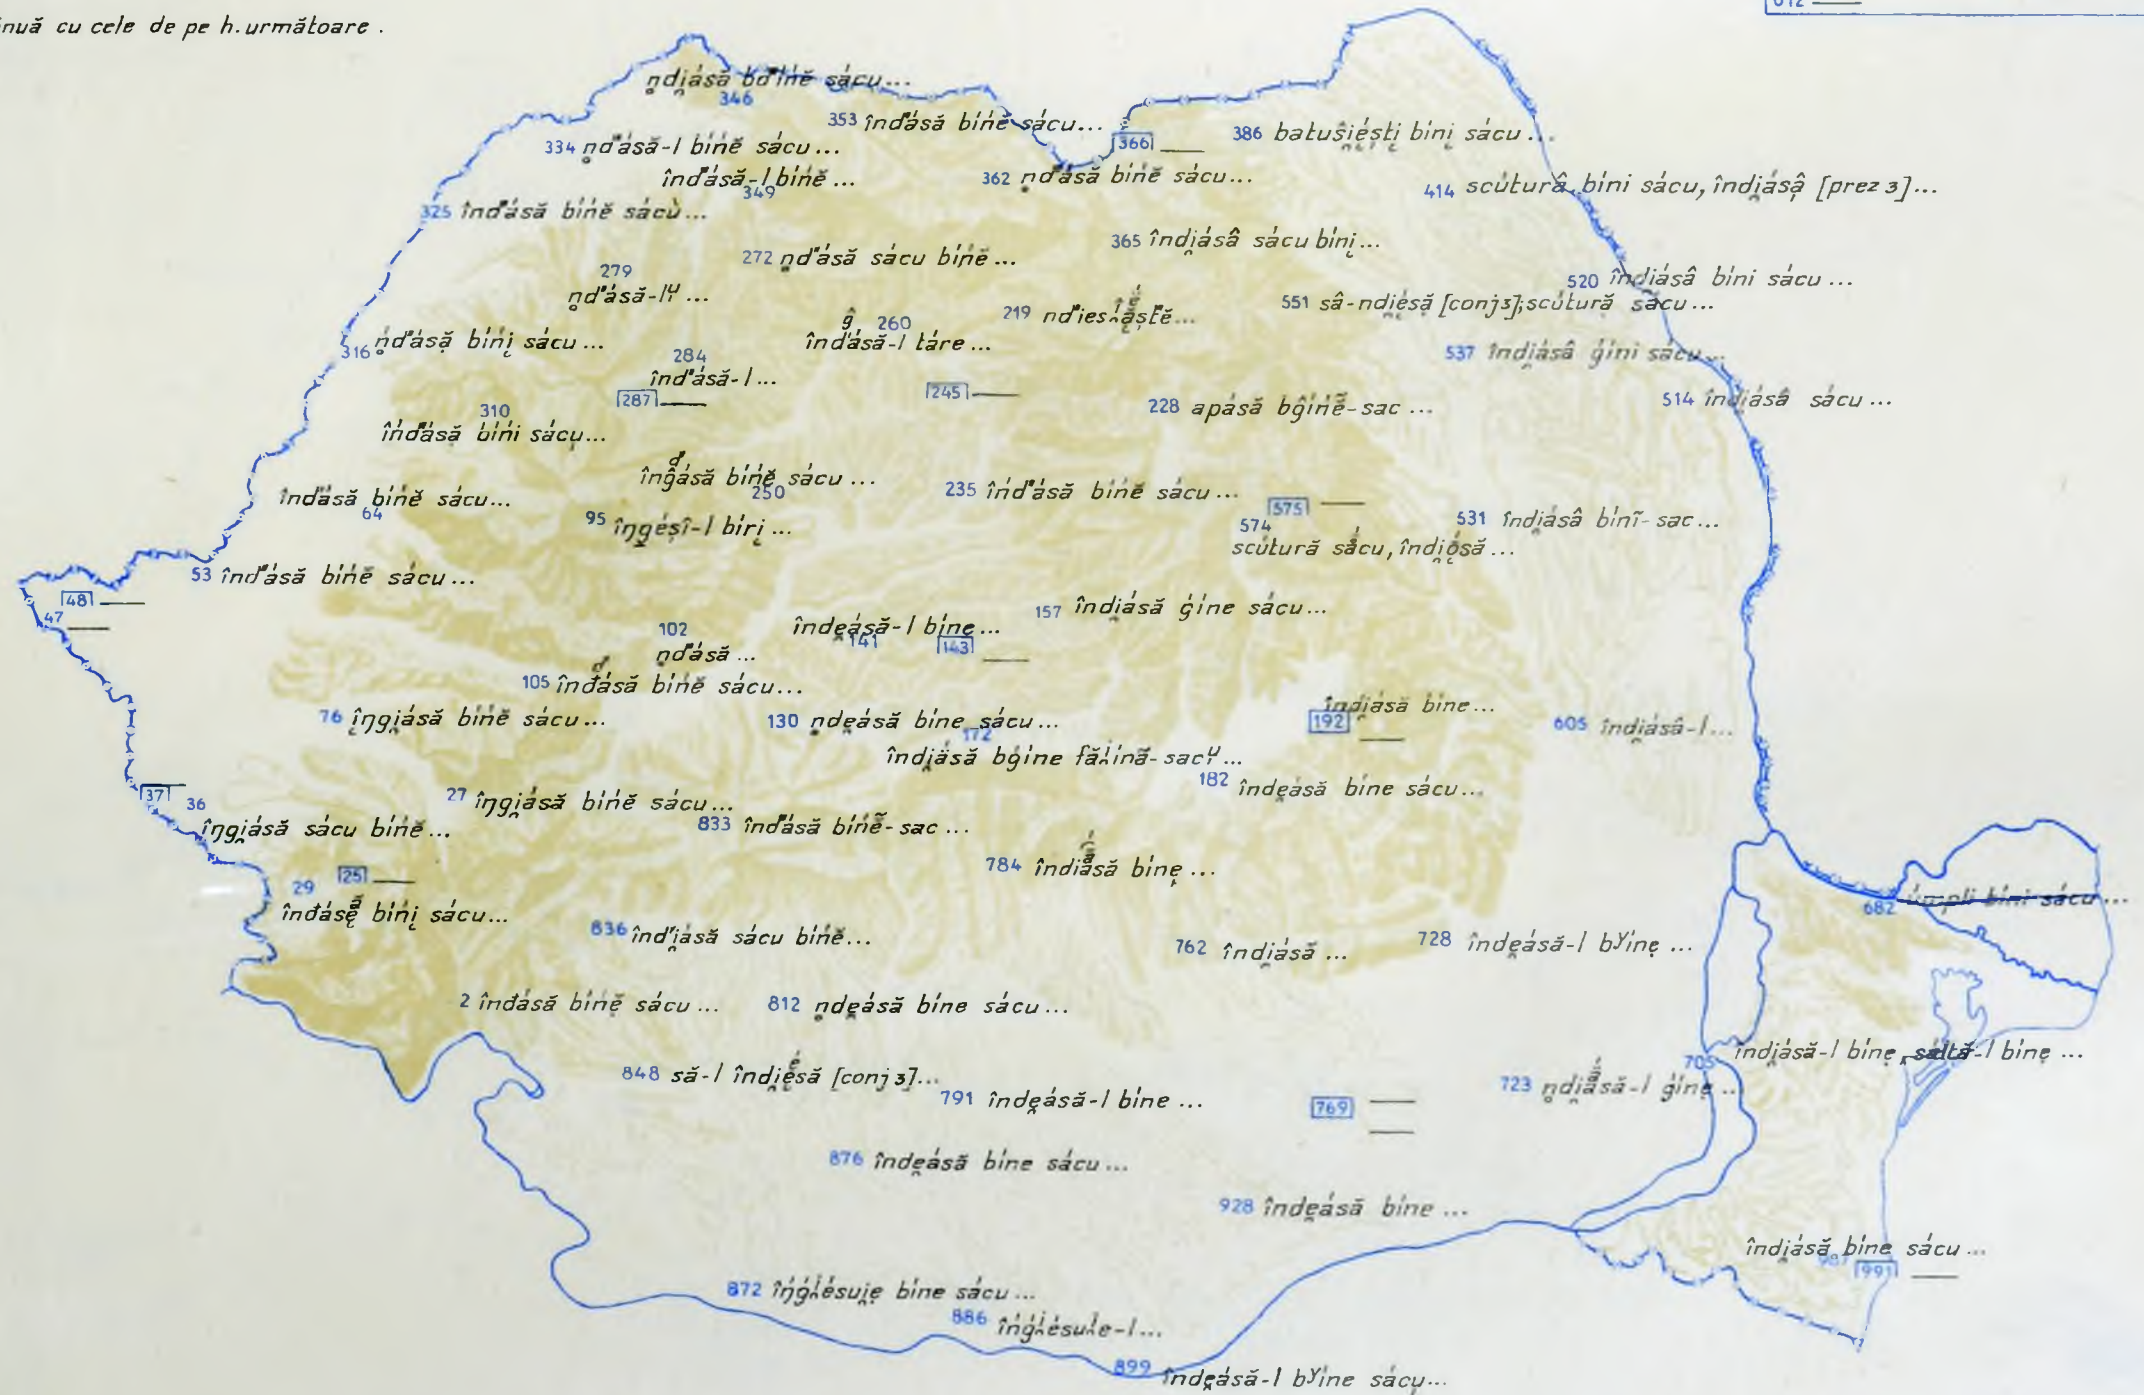 nuă cu cele de pe h. următoare.
612 ——
n̥di̯ásă bd'in̍ĕ sácu...
346
353 înd'ásă bin̍ĕ sácu...
366 ——
386 batuși̯éști̯ bini̯ sácu...
334 n̥d'ásă-l bin̍ĕ sácu...
înd'ásă-l bin̍ĕ ...
349
362 n̥d'ásă bin̍ĕ sácu...
414 scúturâ bini sácu, îndi̯ásâ̦ [prez 3]...
325 înd'ásă bin̍ĕ sácu...
365 îndi̯ásâ sácu bini̯...
272 n̥d'ásă sácu bin̍ĕ ...
279
n̥d'ásă-lᶙ ...
520 îndiásâ bini sácu ...
551 sâ-ndi̯ésă [conj 3]; scútură sácu ...
219
260
înd'ásă-l táre ...
316 n̥d'ásă̦ bin̍i̯ sácu ...
537 îndi̯ásâ ģini sácu...
284
înd'ásă-l ...
287 ——
245 ——
228 apásă bĝin̍ĕ̃-sac ...
514 îndi̯ásâ sácu ...
310
înd'ásă bin̍i sácu̯...
îngásă bin̍ĕ sácu ...
250
64
înd'ásă bin̍ĕ sácu...
235 înd'ásă bin̍ĕ sácu ...
575 ——
95 îŋgéșî-l biri̯ ...
574
scútură sácu, îndi̯ósă ...
531 îndi̯ásâ binĩ-sac ...
53 înd'ásă bin̍ĕ sácu ...
48 ——
47 ——
157 îndi̯ásă ģine sácu...
102
n̥d'ásă ...
înde̯ásă-l bine ...
141
143 ——
105 înđásă bin̍ĕ sácu...
76 îŋgi̯ásă bin̍ĕ sácu ...
130 n̥de̯ásă bine sácu ...
172
îndi̯ásă bģine făʎină-sacᶙ ...
îndi̯ásă bine ...
192 ——
605 îndi̯ásâ-l ...
182 înde̯ásă bine sácu ...
37 ——
36
îŋgi̯ásă sácu bin̍ĕ ...
27 îŋgi̯ásă bin̍ĕ sácu ...
833 înd'ásă bin̍ĕ̃-sac ...
784 îndi̯ásă bine̦ ...
25 ——
29
înđásĕ̦ bin̍i̯ sácu...
682 úmpli bini sácu ...
836 înd'i̯ásă sácu bin̍ĕ...
762 îndi̯ásă ...
728 înde̯ásă-l bʸine̦ ...
2 înđásă bin̍ĕ sácu ...
812 n̥de̯ásă bine sácu ...
705 îndi̯ásă-l bine̦, sáltă-l bine̦ ...
848 să-l îndi̯ésă [conj 3]...
791 înde̯ásă-l bine ...
769 ——
——
723 n̥di̯ásă-l ģine̦ ...
876 înde̯ásă bine sácu ...
928 înde̯ásă bine ...
îndi̯ásă bine sácu ...
987
991 ——
872 îŋ́ģʎésui̯e̦ bine sácu ...
886 îŋ́ģʎésuʎe-l ...
899 înde̯ásă-l bʸine sácu̯ ...